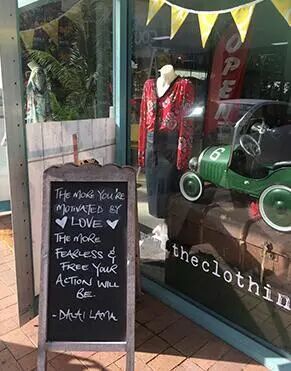 OPEN
6
THE MORE YOU'RE
MOTIVATED BY
LOVE
THE MORE
FEARLESS &
FREE YOUR
ACTION WILL
BE.
- DALAI LAMA
theclothin